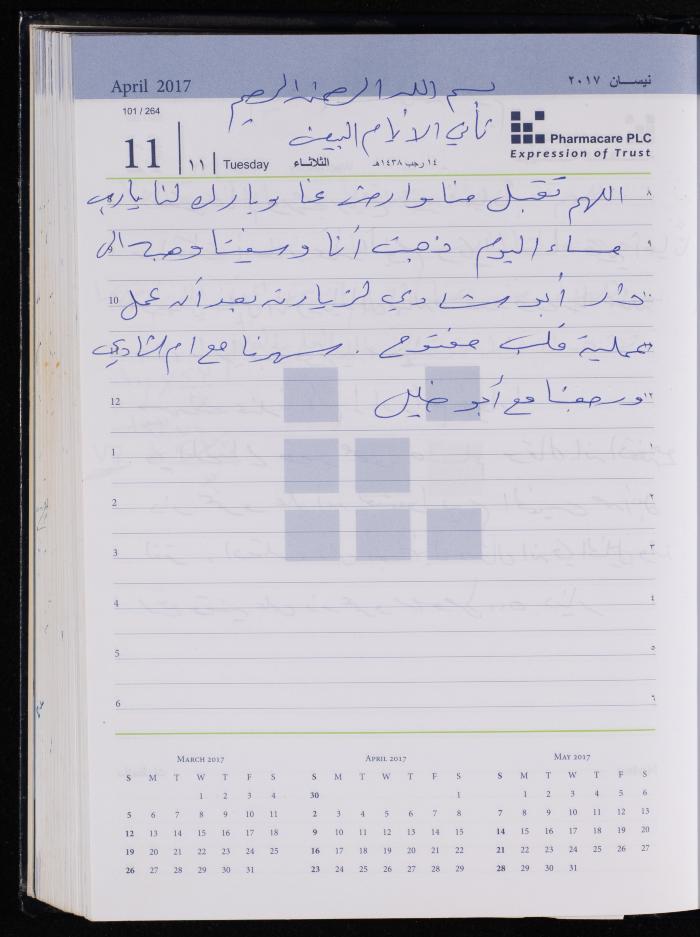 April 2017
نيسان ٢٠١٧
بسم الله الرحمن الرحيم
101 / 264
ثاني الأيام البيض
11 | ١١ | Tuesday الثلاثاء ١٤ رجب ١٤٣٨هـ
Pharmacare PLC
Expression of Trust
اللهم تقبل منا وارض عنا وبارك لنا يا رب ٨
مساء اليوم ذهبت أنا و وصبـ الى ٩
10 دار أبو شادي لزيارته بعد أن عمل
عملية قلب مفتوح . سهرنا مع ام الشادي
12 ورجعنا مع أبو خليل ١٢
1 ١
2 ٢
3 ٣
4 ٤
5 ٥
6 ٦
MARCH 2017
S M T W T F S
1 2 3 4
5 6 7 8 9 10 11
12 13 14 15 16 17 18
19 20 21 22 23 24 25
26 27 28 29 30 31
APRIL 2017
S M T W T F S
30 1
2 3 4 5 6 7 8
9 10 11 12 13 14 15
16 17 18 19 20 21 22
23 24 25 26 27 28 29
MAY 2017
S M T W T F S
1 2 3 4 5 6
7 8 9 10 11 12 13
14 15 16 17 18 19 20
21 22 23 24 25 26 27
28 29 30 31